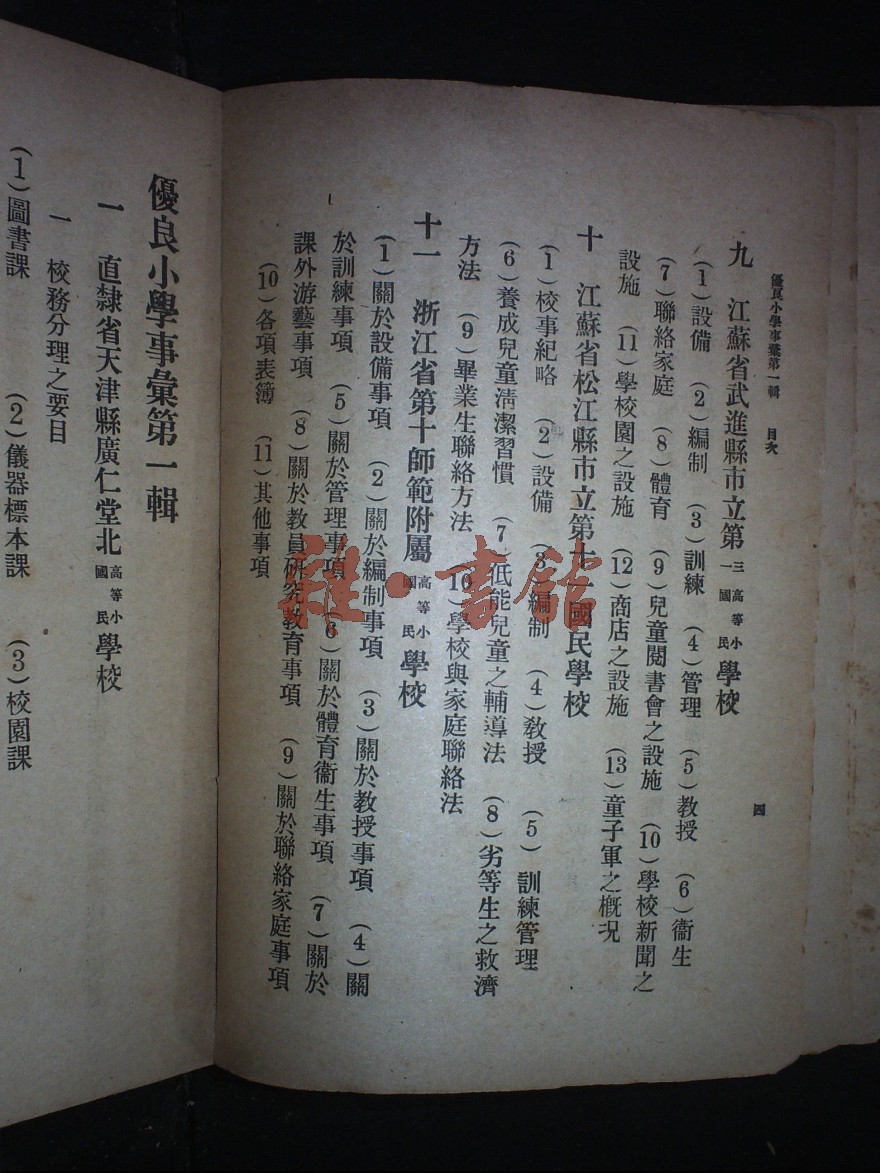 優良小學事彙第一輯 目次
四
九 江蘇省武進縣市立第三一高等小國民學校
(1)設備 (2)編制 (3)訓練 (4)管理 (5)教授 (6)衞生
(7)聯絡家庭 (8)體育 (9)兒童閱書會之設施 (10)學校新聞之
設施 (11)學校園之設施 (12)商店之設施 (13)童子軍之槪況
十 江蘇省松江縣市立第十一國民學校
(1)校事紀略 (2)設備 (3)編制 (4)敎授 (5)訓練管理
(6)養成兒童淸潔習慣 (7)低能兒童之輔導法 (8)劣等生之救濟
方法 (9)畢業生聯絡方法 (10)學校與家庭聯絡法
十一 浙江省第十師範附屬高等小國民學校
(1)關於設備事項 (2)關於編制事項 (3)關於教授事項 (4)關
於訓練事項 (5)關於管理事項 (6)關於體育衞生事項 (7)關於
課外游藝事項 (8)關於教員研究教育事項 (9)關於聯絡家庭事項
(10)各項表簿 (11)其他事項
優良小學事彙第一輯
一 直隸省天津縣廣仁堂北高等小國民學校
一 校務分理之要目
(1)圖書課 (2)儀器標本課 (3)校園課
雜·書館